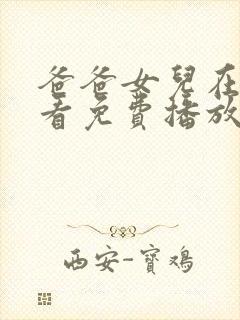 爸爸女兒在
看免費播放
西安-寶鴻